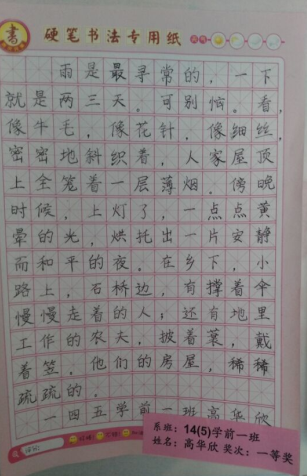 書
硬笔书法专用纸
雨是最寻常的，一下
就是两三天。可别恼。看，
像牛毛，像花针，像细丝，
密密地斜织着，人家屋顶
上全笼着一层薄烟。傍晚
时候，上灯了，一点点黄
晕的光，烘托出一片安静
而和平的夜。在乡下，小
路上，石桥边，有撑着伞
慢慢走着的人；还有地里
工作的农夫，披着蓑，戴
着笠。他们的房屋，稀稀
疏疏的．
一四五学前一班 高华欣
系班：14(5)学前一班
姓名：高华欣 奖次：一等奖